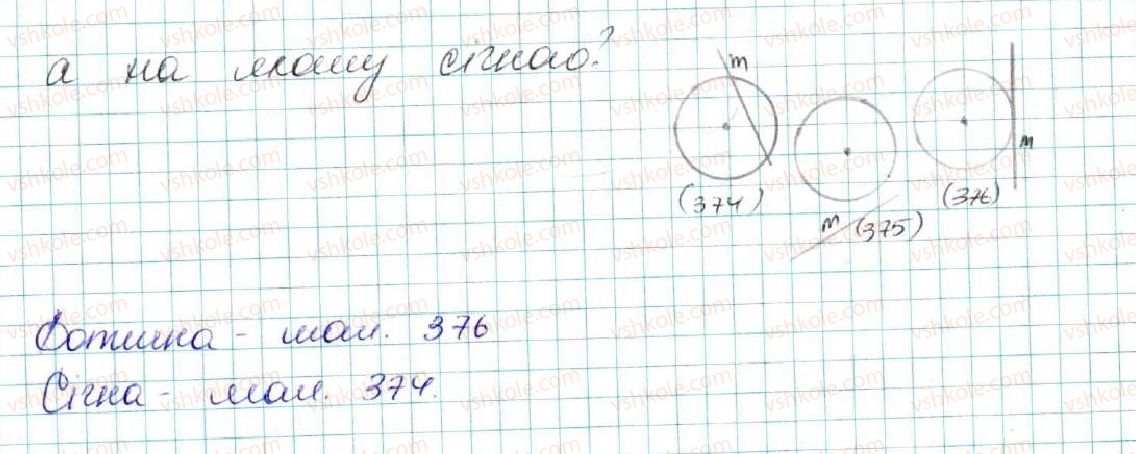 а на якому січною?
m
m
(374)
(376)
m (375)
Дотична - мал. 376
Січна - мал. 374.
vshkole.com